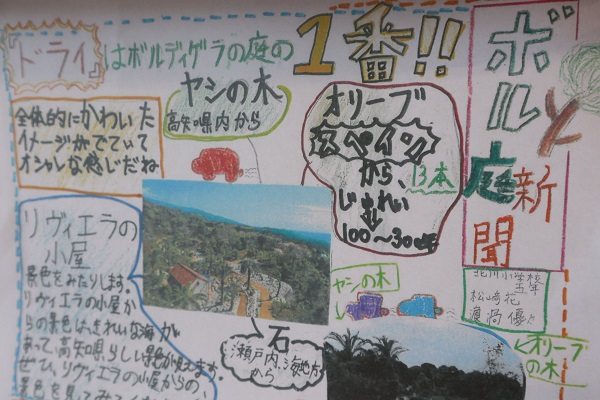 ボルと庭新聞
北川小学校
五年
松崎花
『ドライ』はボルディゲラの庭の
1番!!
全体的にかわいた
イメージがでていて
オシャレな感じだね
ヤシの木
高知県内から
オリーブ
スペイン
から、13本
じゅれい
100〜30
リヴィエラの
小屋
景色をみたりします。
リヴィエラの小屋か
らの景色は、きれいな海が
あって、高知県らしい景色が見えます。
ぜひ、リヴィエラの小屋からの、
景色を見てみてく
石
瀬戸内海地方
から
ヤシの木
オリーブ
の木